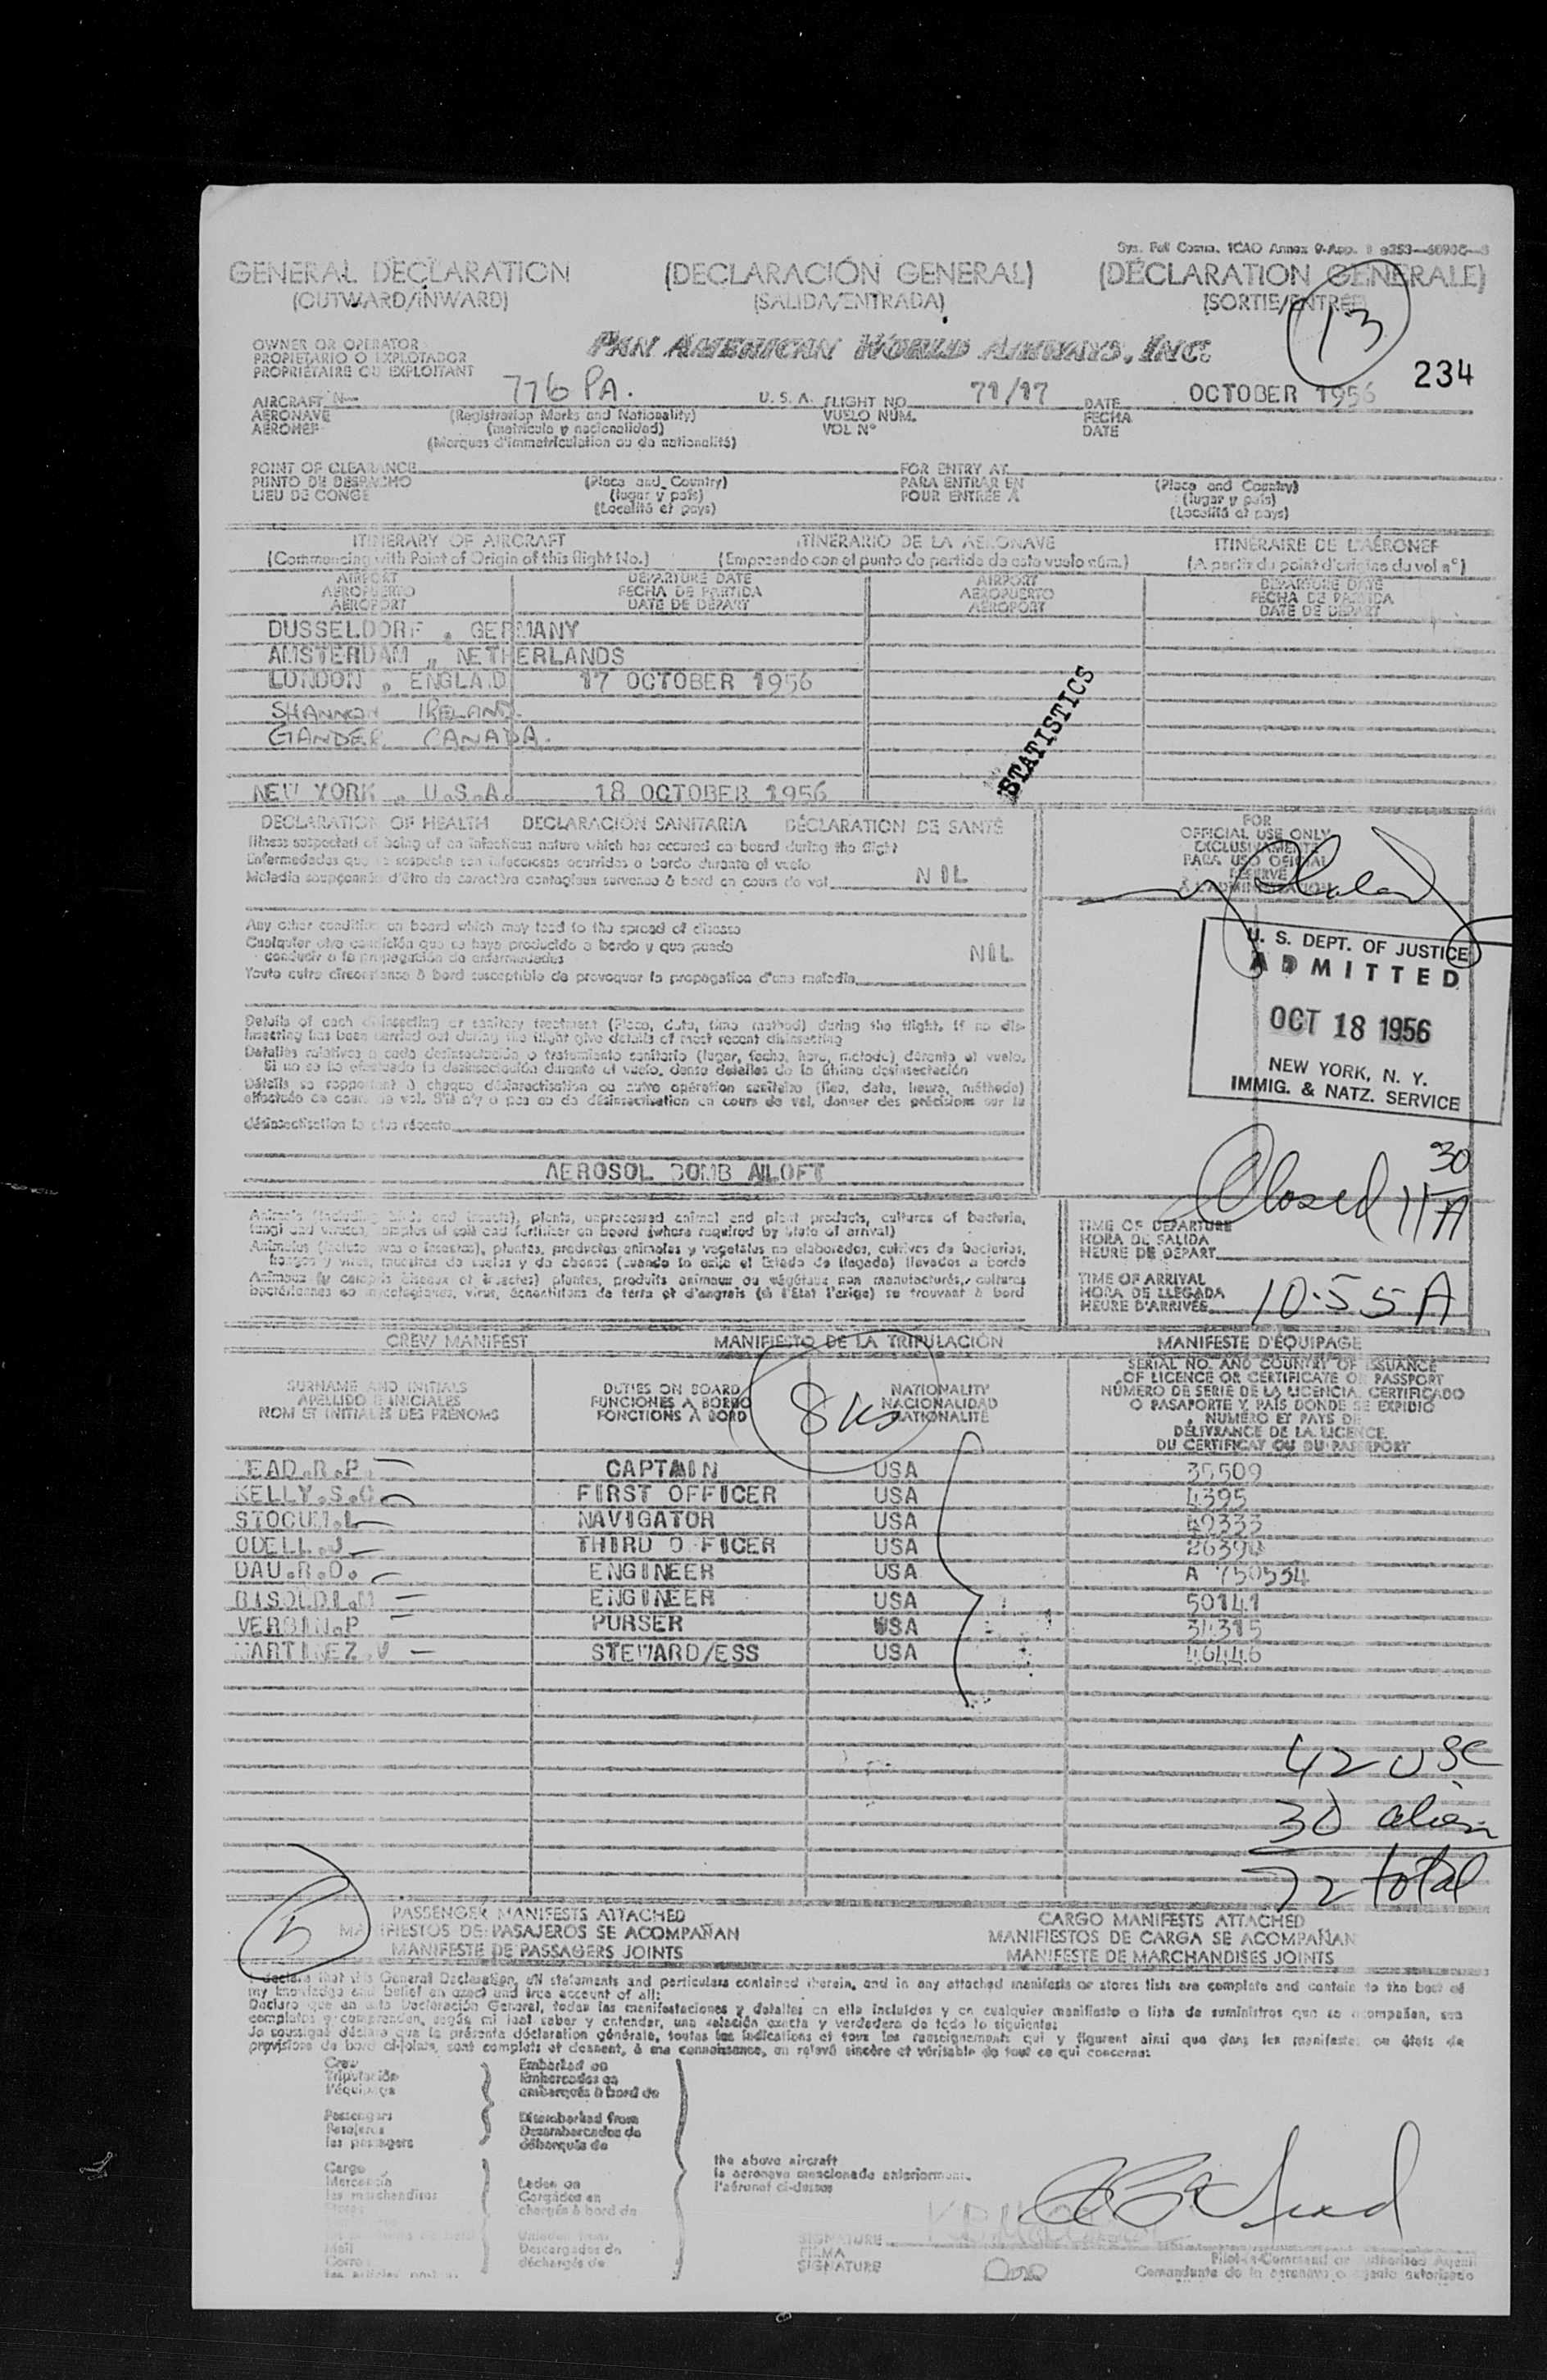 Sys. Fel Comm. ICAO Annex 9-App.
GENERAL DECLARATION (DECLARACIÓN GENERAL) (DÉCLARATION GENERALE)
(OUTWARD/INWARD) (SALIDA/ENTRADA) (SORTIE/ENTRÉE)
13
OWNER OR OPERATOR
PROPIETARIO O EXPLOTADOR
PROPRIÉTAIRE OU EXPLOITANT
PAN AMERICAN WORLD AIRWAYS, INC.
234
AIRCRAFT N 776 PA. U. S. A. FLIGHT NO. 71/17 DATE OCTOBER 1956
AERONAVE (Registration Marks and Nationality) VUELO NÚM. FECHA
AÉRONEF (matrícula y nacionalidad) VOL Nº DATE
(Marques d'immatriculation ou de nationalité)
POINT OF CLEARANCE FOR ENTRY AT
PUNTO DE DESPACHO (Place and Country) PARA ENTRAR EN (Place and Country)
LIEU DE CONGÉ (lugar y país) POUR ENTRÉE A (lugar y país)
(Localité et pays) (Localité et pays)
ITINERARY OF AIRCRAFT ITINERARIO DE LA AERONAVE ITINÉRAIRE DE L'AÉRONEF
(Commencing with Point of Origin of this flight No.) (Empezando con el punto de partida de este vuelo núm.) (A partir du point d'origine du vol nº)
AIRPORT DEPARTURE DATE AIRPORT DEPARTURE DATE
AEROPUERTO FECHA DE PARTIDA AEROPUERTO FECHA DE PARTIDA
AÉROPORT DATE DE DÉPART AÉROPORT DATE DE DÉPART
DUSSELDORF , GERMANY
AMSTERDAM , NETHERLANDS
LONDON , ENGLAD 17 OCTOBER 1956
SHANNON IRELAND.
GANDER CANADA.
STATISTICS
NEW YORK , U.S.A. 18 OCTOBER 1956
DECLARATION OF HEALTH DECLARACIÓN SANITARIA DÉCLARATION DE SANTÉ
FOR
OFFICIAL USE ONLY
EXCLUSIVAMENTE
PARA USO OFICIAL
RÉSERVÉ
À L'ADMINISTRATION
Illness suspected of being of an infectious nature which has occured on board during the flight
Enfermedades que se sospecha son infecciosas ocurridas a bordo durante el vuelo
Maladie soupçonnée d'être de caractère contagieux survenue à bord en cours de vol NIL
Any other condition on board which may lead to the spread of disease
Cualquier otra condición que se haya producido a bordo y que pueda
conducir a la propagación de enfermedades NIL
Toute autre circonstance à bord susceptible de provoquer la propagation d'une maladie
U. S. DEPT. OF JUSTICE
ADMITTED
OCT 18 1956
NEW YORK, N. Y.
IMMIG. & NATZ. SERVICE
Details of each disinsecting or sanitary treatment (Place, date, time method) during the flight. If no dis-
insecting has been carried out during the flight give details of most recent disinsecting
Detalles relativos a cada desinsectación o tratamiento sanitario (lugar, fecha, hora, método) durante el vuelo.
Si no se ha efectuado la desinsectación durante el vuelo, dense detalles de la última desinsectación
Détails se rapportant à chaque désinsectisation ou autre opération sanitaire (lieu, date, heure, méthode)
effectuée au cours de vol. S'il n'y a pas eu de désinsectisation en cours de vol, donner des précisions sur la
désinsectisation la plus récente
AEROSOL BOMB ALOFT
Closed 11 30 A
Animals (including birds and insects), plants, unprocessed animal and plant products, cultures of bacteria,
fungi and viruses, samples of soil and fertilizer on board (where required by State of arrival)
Animales (incluso aves o insectos), plantas, productos animales y vegetales no elaborados, cultivos de bacterias,
hongos y virus, muestras de suelos y de abonos (cuando lo exija el Estado de llegada) llevados a bordo
Animaux (y compris oiseaux et insectes) plantes, produits animaux ou végétaux non manufacturés, cultures
bactériennes ou mycologiques, virus, échantillons de terre et d'engrais (si l'État l'exige) se trouvant à bord
TIME OF DEPARTURE
HORA DE SALIDA
HEURE DE DÉPART
TIME OF ARRIVAL
HORA DE LLEGADA
HEURE D'ARRIVÉE 10.55 A
CREW MANIFEST MANIFIESTO DE LA TRIPULACIÓN MANIFESTE D'ÉQUIPAGE
SURNAME AND INITIALS
APELLIDO E INICIALES
NOM ET INITIALES DES PRÉNOMS
DUTIES ON BOARD
FUNCIONES A BORDO
FONCTIONS À BORD
8 us
NATIONALITY
NACIONALIDAD
NATIONALITÉ
SERIAL NO. AND COUNTRY OF ISSUANCE
OF LICENCE OR CERTIFICATE OR PASSPORT
NÚMERO DE SERIE DE LA LICENCIA, CERTIFICADO
O PASAPORTE Y PAÍS DONDE SE EXPIDIÓ
NUMÉRO ET PAYS DE
DÉLIVRANCE DE LA LICENCE,
DU CERTIFICAT OU DU PASSEPORT
EAD.R.P. CAPTAIN USA 35509
KELLY.S.C. FIRST OFFICER USA 4395
STOCUM.L NAVIGATOR USA 49333
ODELL.J THIRD O FICER USA 26390
DAU.R.O. ENGINEER USA A 750554
ENGINEER USA 50141
PURSER USA 34315
MARTINEZ.V STEWARD/ESS USA 46446
42 USC
30 alien
72 total
5
PASSENGER MANIFESTS ATTACHED CARGO MANIFESTS ATTACHED
MANIFIESTOS DE PASAJEROS SE ACOMPAÑAN MANIFIESTOS DE CARGA SE ACOMPAÑAN
MANIFESTE DE PASSAGERS JOINTS MANIFESTE DE MARCHANDISES JOINTS
declare that this General Declaration, all statements and particulars contained therein, and in any attached manifests or stores lists are complete and contain to the best of
my knowledge and belief an exact and true account of all:
Declaro que en esta Declaración General, todas las manifestaciones y detalles en ella incluidos y en cualquier manifiesto o lista de suministros que se acompañan, son
completos y comprenden, según mi leal saber y entender, una relación exacta y verdadera de todo lo siguiente:
Je soussigné déclare que la présente déclaration générale, toutes les indications et tous les renseignements qui y figurent ainsi que dans les manifestes ou états de
provisions de bord ci-joints, sont complets et donnent, à ma connaissance, un relevé sincère et véritable de tout ce qui concerne:
Crew Embarked on
Tripulación Embarcados en
l'équipage embarqués à bord de
Passengers Disembarked from
Pasajeros Desembarcados de
les passagers débarqués de
Cargo
Mercancía Laden on
les marchandises Cargados en
chargés à bord de
the above aircraft
la aeronave mencionada anteriormente.
l'aéronef ci-dessus
Mail Unladen from
Correo Descargados de
déchargés de
SIGNATURE
FIRMA
SIGNATURE
Pilot-in-Command or Authorised Agent
Comandante de la aeronave o agente autorizado